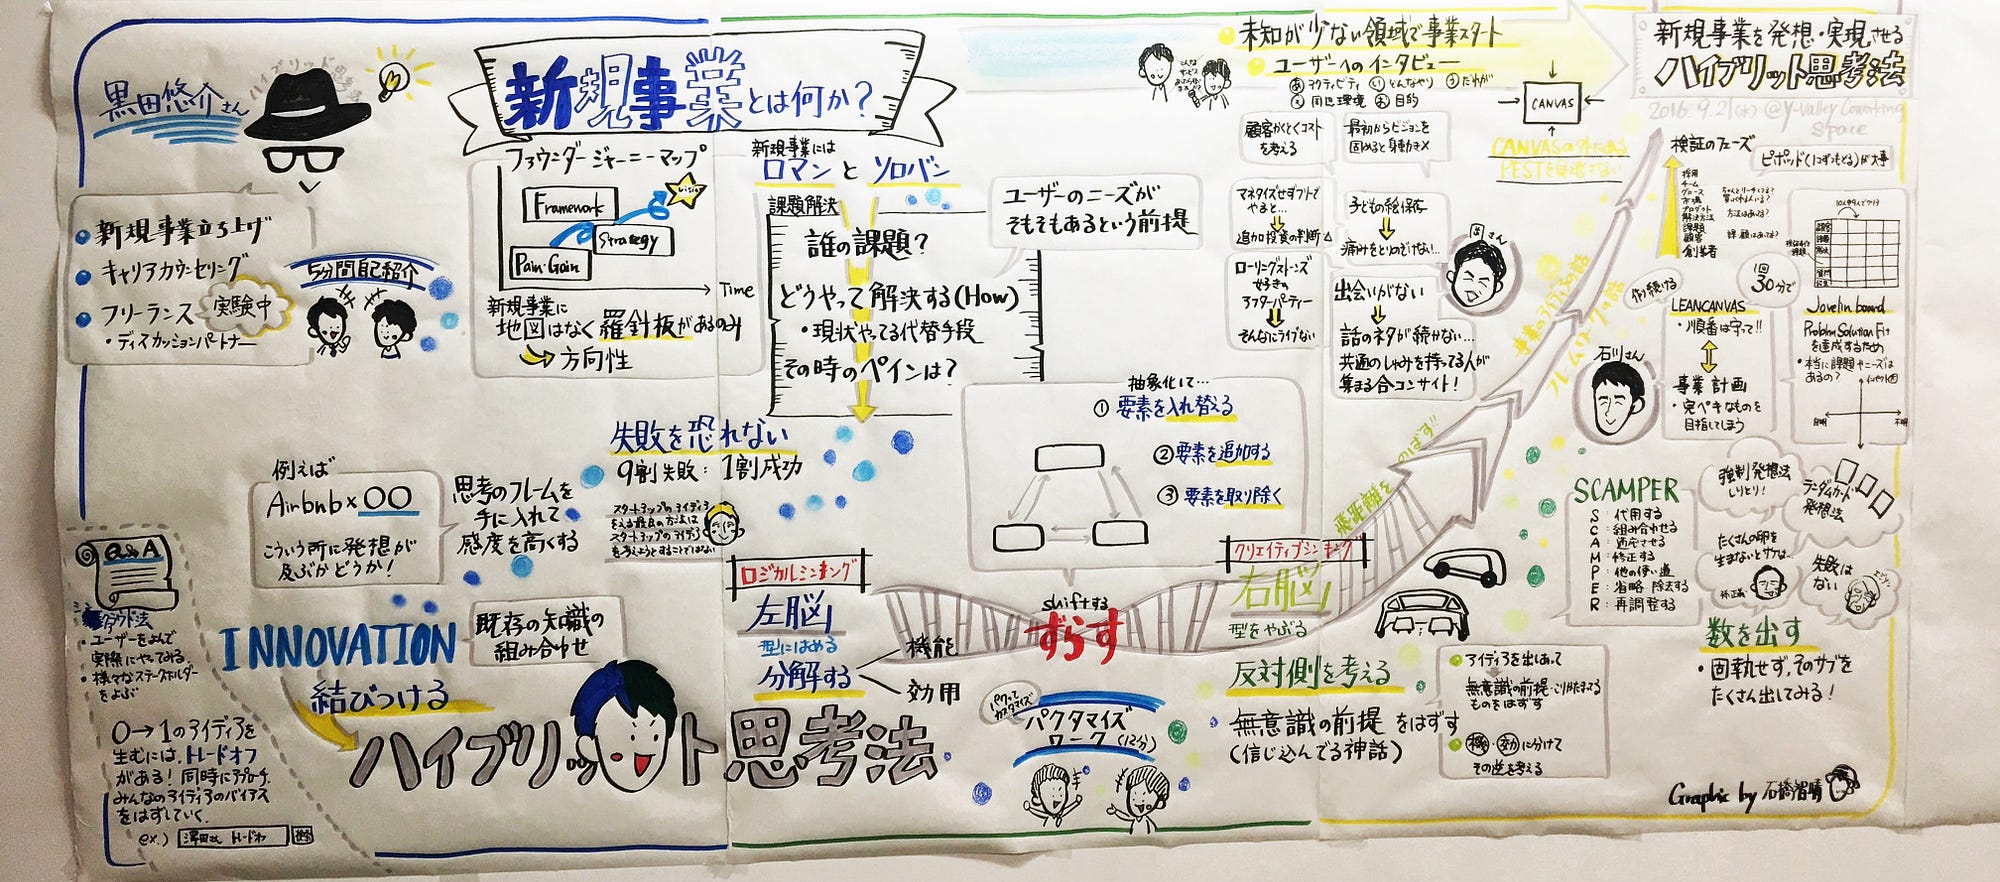 黒田悠介さん
ハイブリッド思考
新規事業立ち上げ
キャリアカウンセリング
フリーランス
実験中
・ディスカッションパートナー
5分間自己紹介
新規事業とは何か?
ファウンダージャーニーマップ
Framework
Vision
Strategy
Pain・Gain
Time
新規事業に
地図はなく羅針板があるのみ
方向性
新規事業には
ロマンとソロバン
課題解決
誰の課題?
どうやって解決する(How)
・現状やってる代替手段
その時のペインは?
ユーザーのニーズが
そもそもあるという前提
失敗を恐れない
9割失敗:1割成功
スタートアップのアイディア
を考える最良の方法は
スタートアップのアイディア
を考えようとすることではない
例えば
Airbnb×○○
こういう所に発想が
及ぶかどうか!
思考のフレームを
手に入れて
感度を高くする
INNOVATION
結びつける
既存の知識の
組み合わせ
ハイブリット思考法
Q&A
・ユーザーをよんで
実際にやってみる
・様々なステークホルダー
をよぶ
0→1のアイディアを
生むには、トレードオフ
がある!同時にアプローチ.
みんなのアイディアのバイアス
をはずしていく.
ex.)
澤田さん トレードオフ
抽象化して…
① 要素を入れ替える
② 要素を追加する
③ 要素を取り除く
ロジカルシンキング
左脳
型にはめる
分解する
機能
効用
shiftする
ずらす
パクって
カスタマイズ
パクタマイズ
ワーク(12分)
クリエイティブシンキング
右脳
型をやぶる
反対側を考える
無意識の前提をはずす
(信じ込んでる神話)
・アイディアを出しあって
無意識の前提・こりかたまってる
ものをはずす
・機・効に分けて
その逆を考える
飛距離をのばす!!
未知が少ない領域で事業スタート
ユーザーへのインタビュー
あ アクティビティ い どんなやり う だれが
え 周辺環境 お 目的
CANVAS
CANVASの外にある
PESTを見地でない
顧客かくとくコスト
を考える
最初からビジョンを
固めると身動き×
マネタイズせずフリーで
やると…
追加投資の判断△
子どもの絵保存
痛みをとりのぞけない…
ローリングストーンズ
好きの
アフターパーティー
そんなにライブない
出会いがない
話のネタが続かない…
共通のしゅみを持ってる人が
集まる合コンサイト!
新規事業を発想・実現させる
ハイブリット思考法
2016.9.21(水) @Y-Valley Coworking
Space
検証のフェーズ
ピボット(にずっともどる)が大事
採用
チーム
グロース
市場
プロダクト
解決方法
課題
顧客
創業者
方法はあってる?
課題はあってる?
作り続ける
1回
30分で
LEANCANVAS
・順番は守って!!
事業計画
・完ペキなものを
目指してしまう
Javelin board
Problem Solution Fit
を達成するため
・本当に課題やニーズは
あるの?
インパクト大
自明
不明
石川さん
SCAMPER
S:代用する
C:組み合わせる
A:適応させる
M:修正する
P:他の使い道
E:省略 除去する
R:再調整する
強制発想法
しりとり!
ランダムカード
発想法
たくさんの卵を
生まないとサケは…
孫正義
失敗は
ない
エジソン
数を出す
・固執せず、そのサブを
たくさん出してみる!
Graphic by 石橋智晴